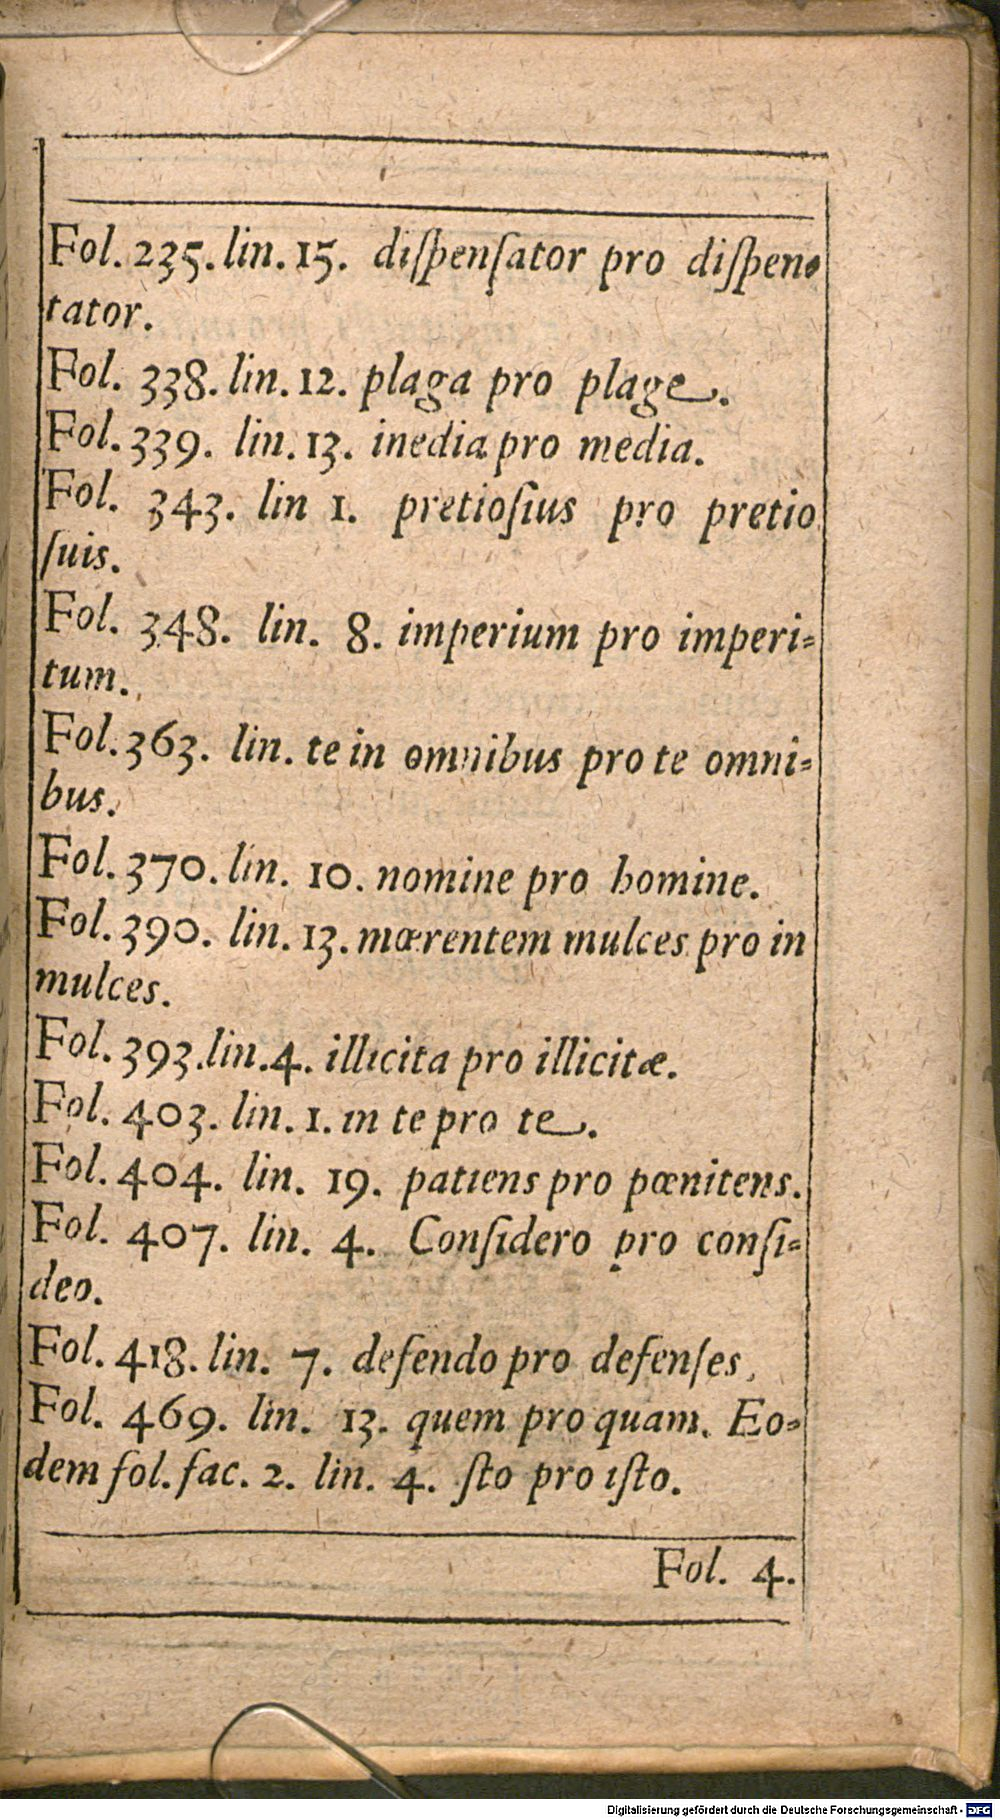 Fol. 235. lin. 15. diſpenſator pro diſpen-
tator.
Fol. 338. lin. 12. plaga pro plage.
Fol. 339. lin. 13. inedia pro media.
Fol. 343. lin 1. pretioſius pro pretio
ſuis.
Fol. 348. lin. 8. imperium pro imperi-
tum.
Fol. 363. lin. te in omnibus pro te omni-
bus.
Fol. 370. lin. 10. nomine pro homine.
Fol. 390. lin. 13. mœrentem mulces pro in
mulces.
Fol. 393. lin. 4. illicita pro illicitæ.
Fol. 403. lin. 1. in te pro te.
Fol. 404. lin. 19. patiens pro pœnitens.
Fol. 407. lin. 4. Conſidero pro conſi-
deo.
Fol. 418. lin. 7. defendo pro defenſes.
Fol. 469. lin. 13. quem pro quam. Eo-
dem fol. fac. 2. lin. 4. ſto pro iſto.
Fol. 4.
Digitalisierung gefördert durch die Deutsche Forschungsgemeinschaft - DFG